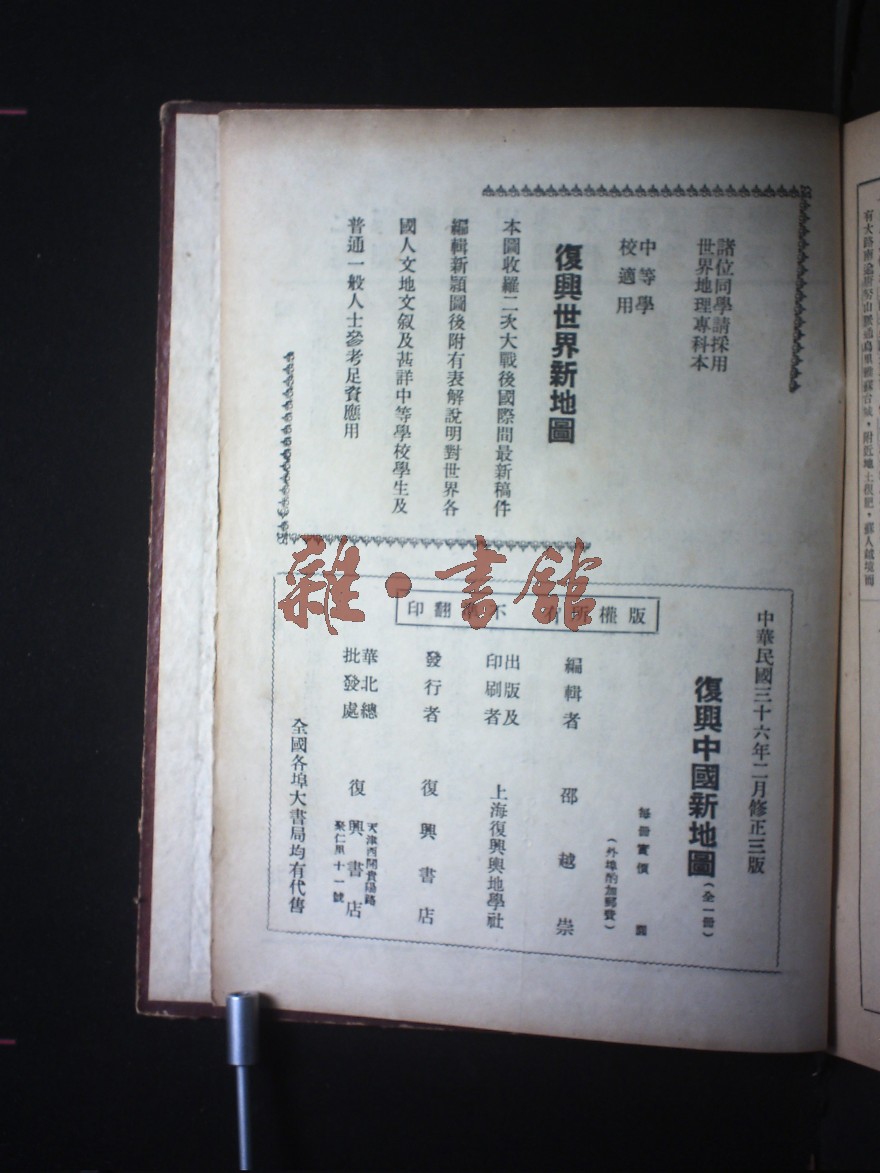 諸位同學請採用
世界地理專科本
中等學
校適用
復興世界新地圖
本圖收羅二次大戰後國際間最新稿件
編輯新穎圖後附有表解說明對世界各
國人文地文叙及甚詳中等學校學生及
普通一般人士參考足資應用
中華民國三十六年二月修正三版
復興中國新地圖(全一冊)
每冊實價 圓
(外埠酌加郵費)
版權所有 不翻印
編輯者 邵越崇
出版及
印刷者 上海復興輿地學社
發行者 復興書店
華北總
批發處 復興書店
天津西開貴陽路
聚仁里十一號
全國各埠大書局均有代售
雜·書館